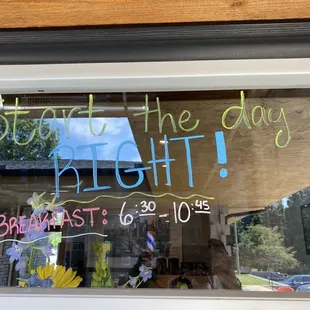 Start the day
RIGHT!
BREAKFAST: 6:30-10:45